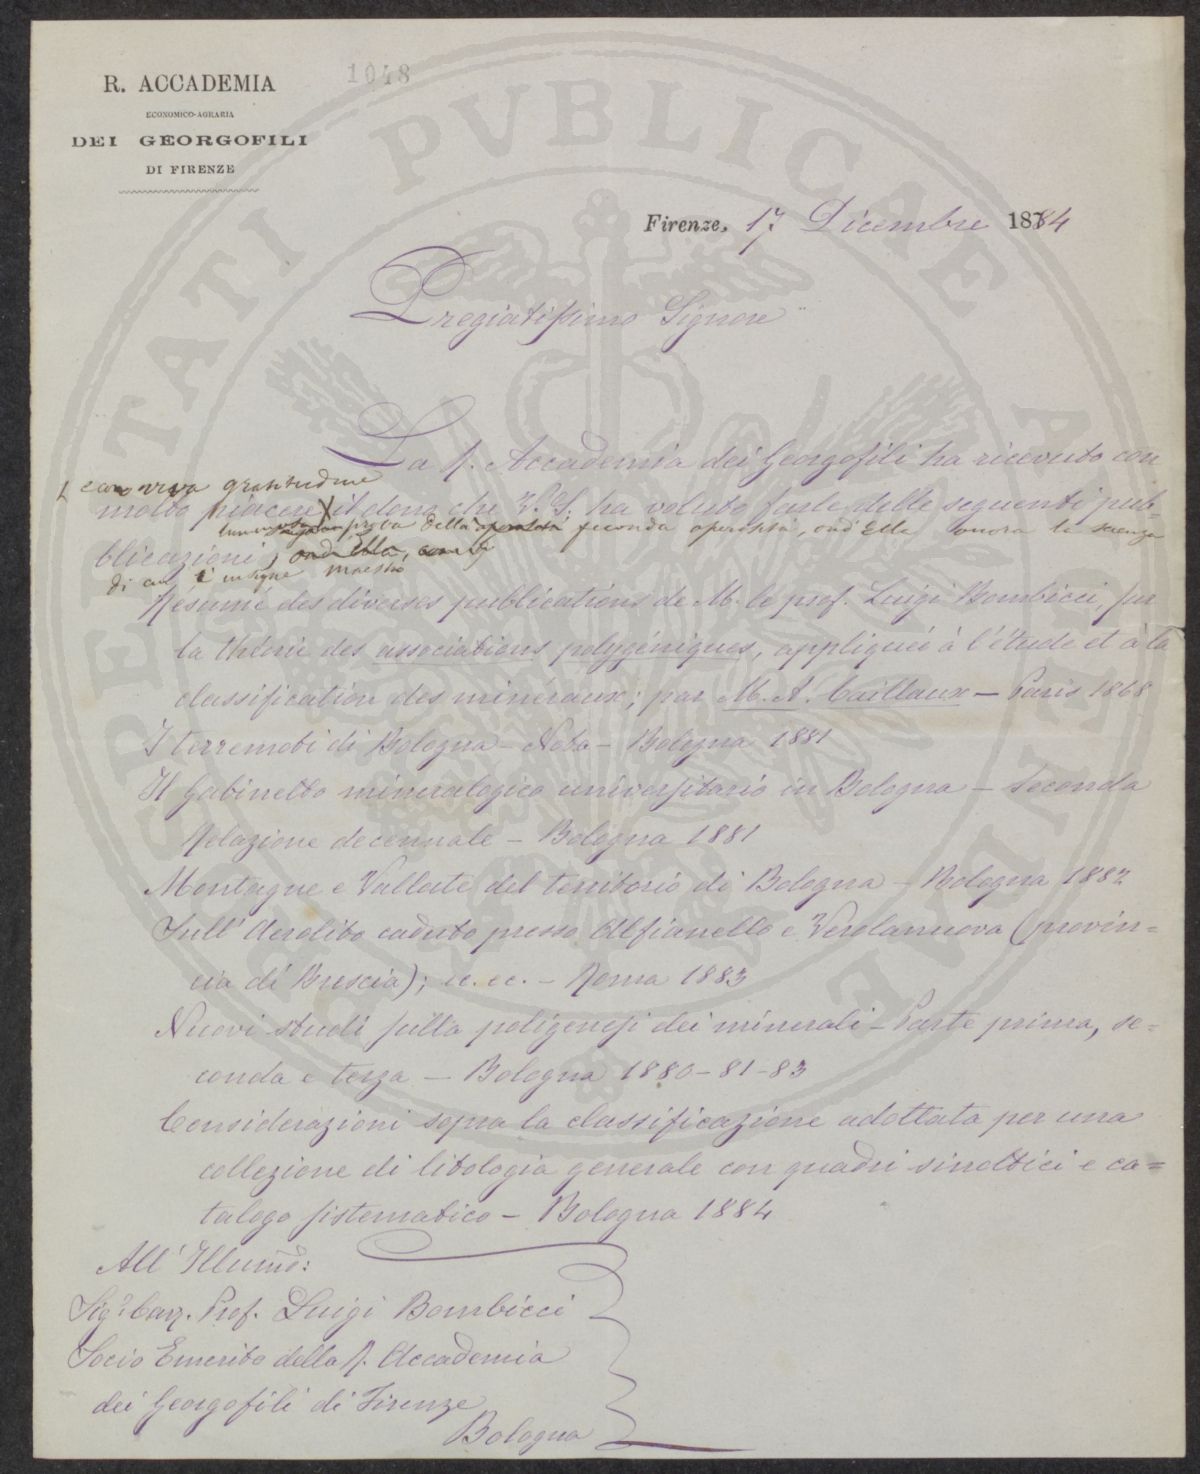 1048
R. ACCADEMIA
ECONOMICO-AGRARIA
DEI GEORGOFILI
DI FIRENZE
SPERTATI PVBLICAE AVGMENTAE
Firenze, 17 Dicembre 1884
Pregiatissimo Signore
La R. Accademia dei Georgofili ha ricevuto con
e con viva gratitudine
molto piacere il dono che V.S. ha voluto farle delle seguenti pub-
prova della feconda operosità, ond'Ella onora la scienza
blicazioni, ond'Ella, con
di cui è insigne maestro
Résumé des diverses publications de M. le prof. Luigi Bombicci, sur
la théorie des associations polygéniques, appliqueé à l'étude et à la
classification des minéraux; par M. A. Caillaux — Paris 1868
I terremoti di Bologna – Nota – Bologna 1881
Il Gabinetto mineralogico universitario in Bologna – Seconda
Relazione decennale – Bologna 1881
Montagne e Vallate del territorio di Bologna – Bologna 1882
Sull'Aerolito caduto presso Alfianello e Verolanuova (provin=
cia di Brescia); ec. ec. – Roma 1883
Nuovi studi sulla poligenesi dei minerali – Parte prima, se=
conda e terza — Bologna 1880–81–83
Considerazioni sopra la classificazione adottata per una
collezione di litologia generale con quadri sinottici e ca=
talogo sistematico – Bologna 1884
All'Illumo:
Sigr Cav. Prof. Luigi Bombicci
Socio Emerito della R. Accademia
dei Georgofili di Firenze
Bologna